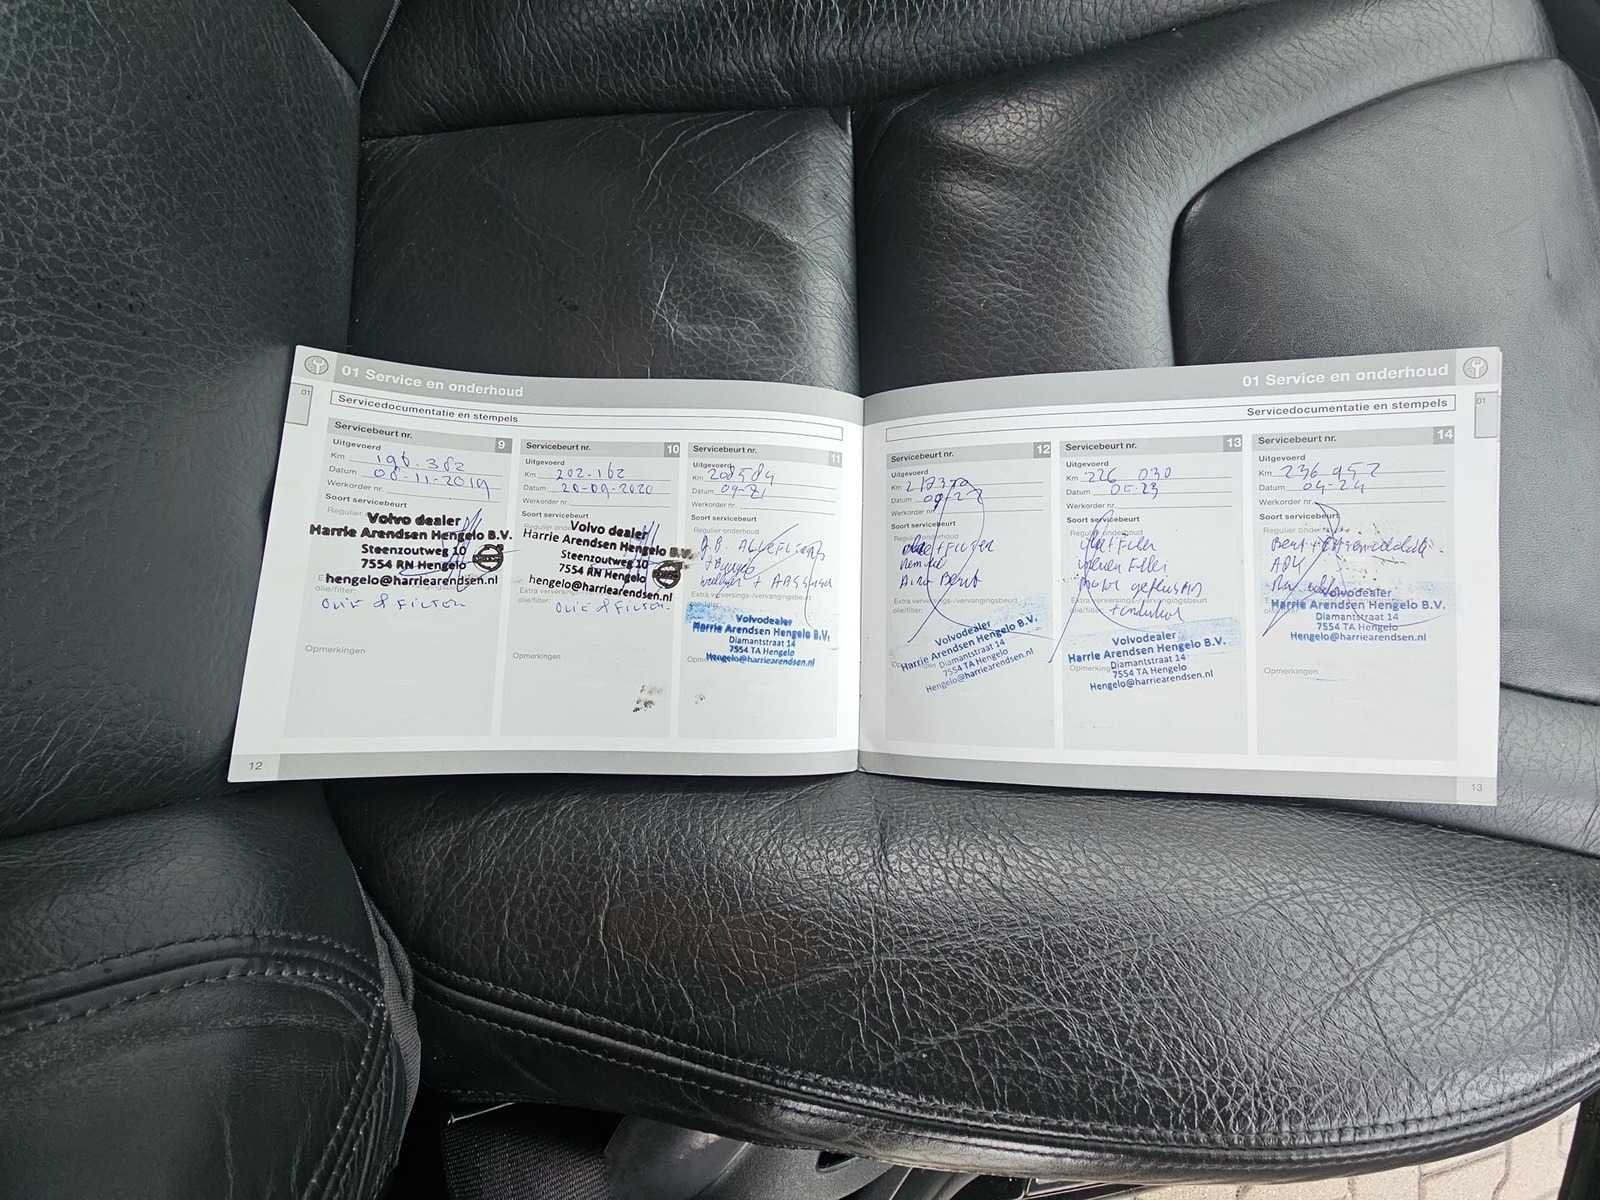 01 Service en onderhoud
01
Servicedocumentatie en stempels
Servicebeurt nr. 9
Uitgevoerd
Km 196.382
Datum 08-11-2019
Werkorder nr.
Soort servicebeurt
Regulier
Volvo dealer
Harrie Arendsen Hengelo B.V.
Steenzoutweg 10
7554 RN Hengelo
hengelo@harriearendsen.nl
olie/filter:
OLIE & FILTER
Opmerkingen
Servicebeurt nr. 10
Uitgevoerd
Km 202.162
Datum 20-09-2020
Werkorder nr.
Soort servicebeurt
Volvo dealer
Harrie Arendsen Hengelo B.V.
Steenzoutweg 10
7554 RN Hengelo
hengelo@harriearendsen.nl
olie/filter:
OLIE & FILTER
Opmerkingen
Servicebeurt nr. 11
Uitgevoerd
Km 208584
Datum 09-21
Werkorder nr.
Soort servicebeurt
Regulier onderhoud
+ ABS
Volvodealer
Harrie Arendsen Hengelo B.V.
Diamantstraat 14
7554 TA Hengelo
Hengelo@harriearendsen.nl
12
01 Service en onderhoud
01
Servicedocumentatie en stempels
Servicebeurt nr. 12
Uitgevoerd
Km
Datum 09-22
Werkorder nr.
Soort servicebeurt
Regulier onderhoud
Beurt
Extra verversings-/vervangingsbeurt
olie/filter:
Volvodealer
Harrie Arendsen Hengelo B.V.
Diamantstraat 14
7554 TA Hengelo
Hengelo@harriearendsen.nl
Servicebeurt nr. 13
Uitgevoerd
Km 226 030
Datum 05-23
Werkorder nr.
Soort servicebeurt
Regulier onderhoud
Filter
Extra verversings-/vervangingsbeurt
olie/filter:
Volvodealer
Harrie Arendsen Hengelo B.V.
Diamantstraat 14
7554 TA Hengelo
Hengelo@harriearendsen.nl
Servicebeurt nr. 14
Uitgevoerd
Km 236 957
Datum 04-24
Werkorder nr.
Soort servicebeurt
Beurt
APK
Volvodealer
Harrie Arendsen Hengelo B.V.
Diamantstraat 14
7554 TA Hengelo
Hengelo@harriearendsen.nl
Opmerkingen
13